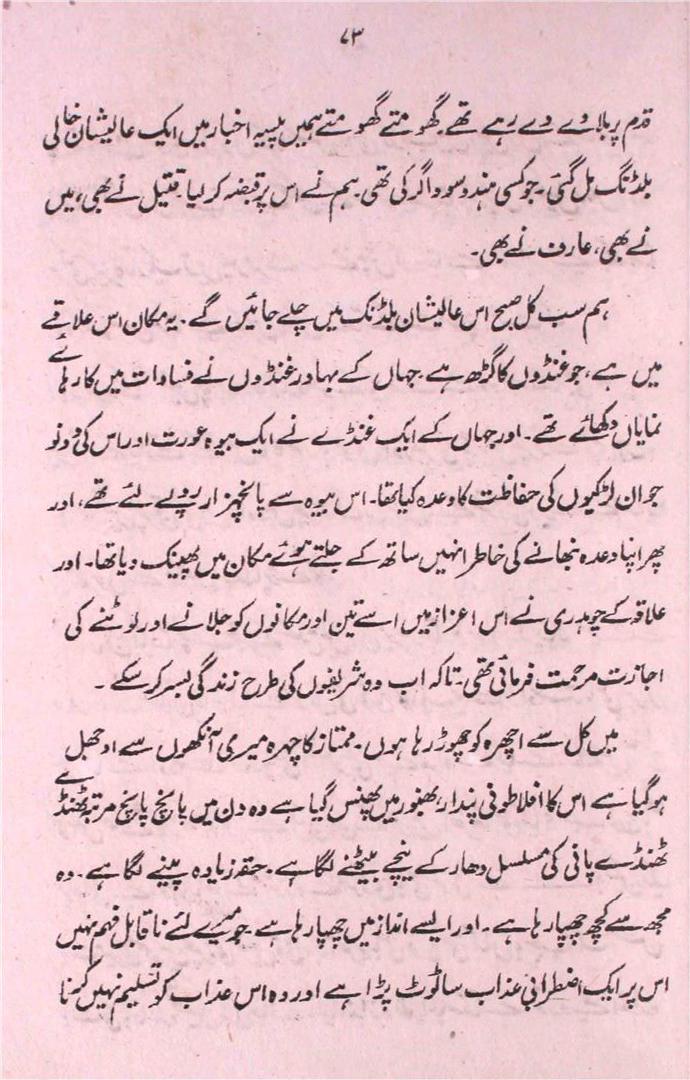 ۷۳
قدم پر بلاوے دے رہے تھے۔ گھومتے گھومتے ہمیں پیسہ اخبار میں ایک عالیشان خالی
بلڈنگ مل گئی۔ جو کسی ہندو سوداگر کی تھی۔ ہم نے اس پر قبضہ کر لیا۔ قتیل نے بھی، میں
نے بھی، عارف نے بھی۔
ہم سب کل صبح اس عالیشان بلڈنگ میں چلے جائیں گے۔ یہ مکان اس علاقے
میں ہے، جو غنڈوں کا گڑھ ہے۔ جہاں کے بہادر غنڈوں نے فسادات میں کارہائے
نمایاں دکھائے تھے۔ اور جہاں کے ایک غنڈے نے ایک بیوہ عورت اور اس کی دونو
جوان لڑکیوں کی حفاظت کا وعدہ کیا تھا۔ اس بیوہ سے پانچہزار روپے لئے تھے، اور
پھر اپنا وعدہ نبھانے کی خاطر انہیں ساتھ کے جلتے ہوئے مکان میں پھینک دیا تھا۔ اور
علاقہ کے چوہدری نے اس اعزاز میں اسے تین اور مکانوں کو جلانے اور لوٹنے کی
اجازت مرحمت فرمائی تھی۔ تاکہ اب وہ شریفوں کی طرح زندگی بسر کر سکے۔
میں کل سے اچھرہ کو چھوڑ رہا ہوں۔ ممتاز کا چہرہ میری آنکھوں سے اوجھل
ہو گیا ہے اس کا افلاطونی پندار، بھنور میں پھنس گیا ہے وہ دن میں پانچ پانچ مرتبہ ٹھنڈے
ٹھنڈے پانی کی مسلسل دھار کے نیچے بیٹھنے لگا ہے۔ حقہ زیادہ پینے لگا ہے۔ وہ
مجھ سے کچھ چھپا رہا ہے۔ اور ایسے انداز میں چھپا رہا ہے۔ جو میرے لئے ناقابل فہم نہیں
اس پر ایک اضطرابی عذاب سا ٹوٹ پڑا ہے اور وہ اس عذاب کو تسلیم نہیں کرنا